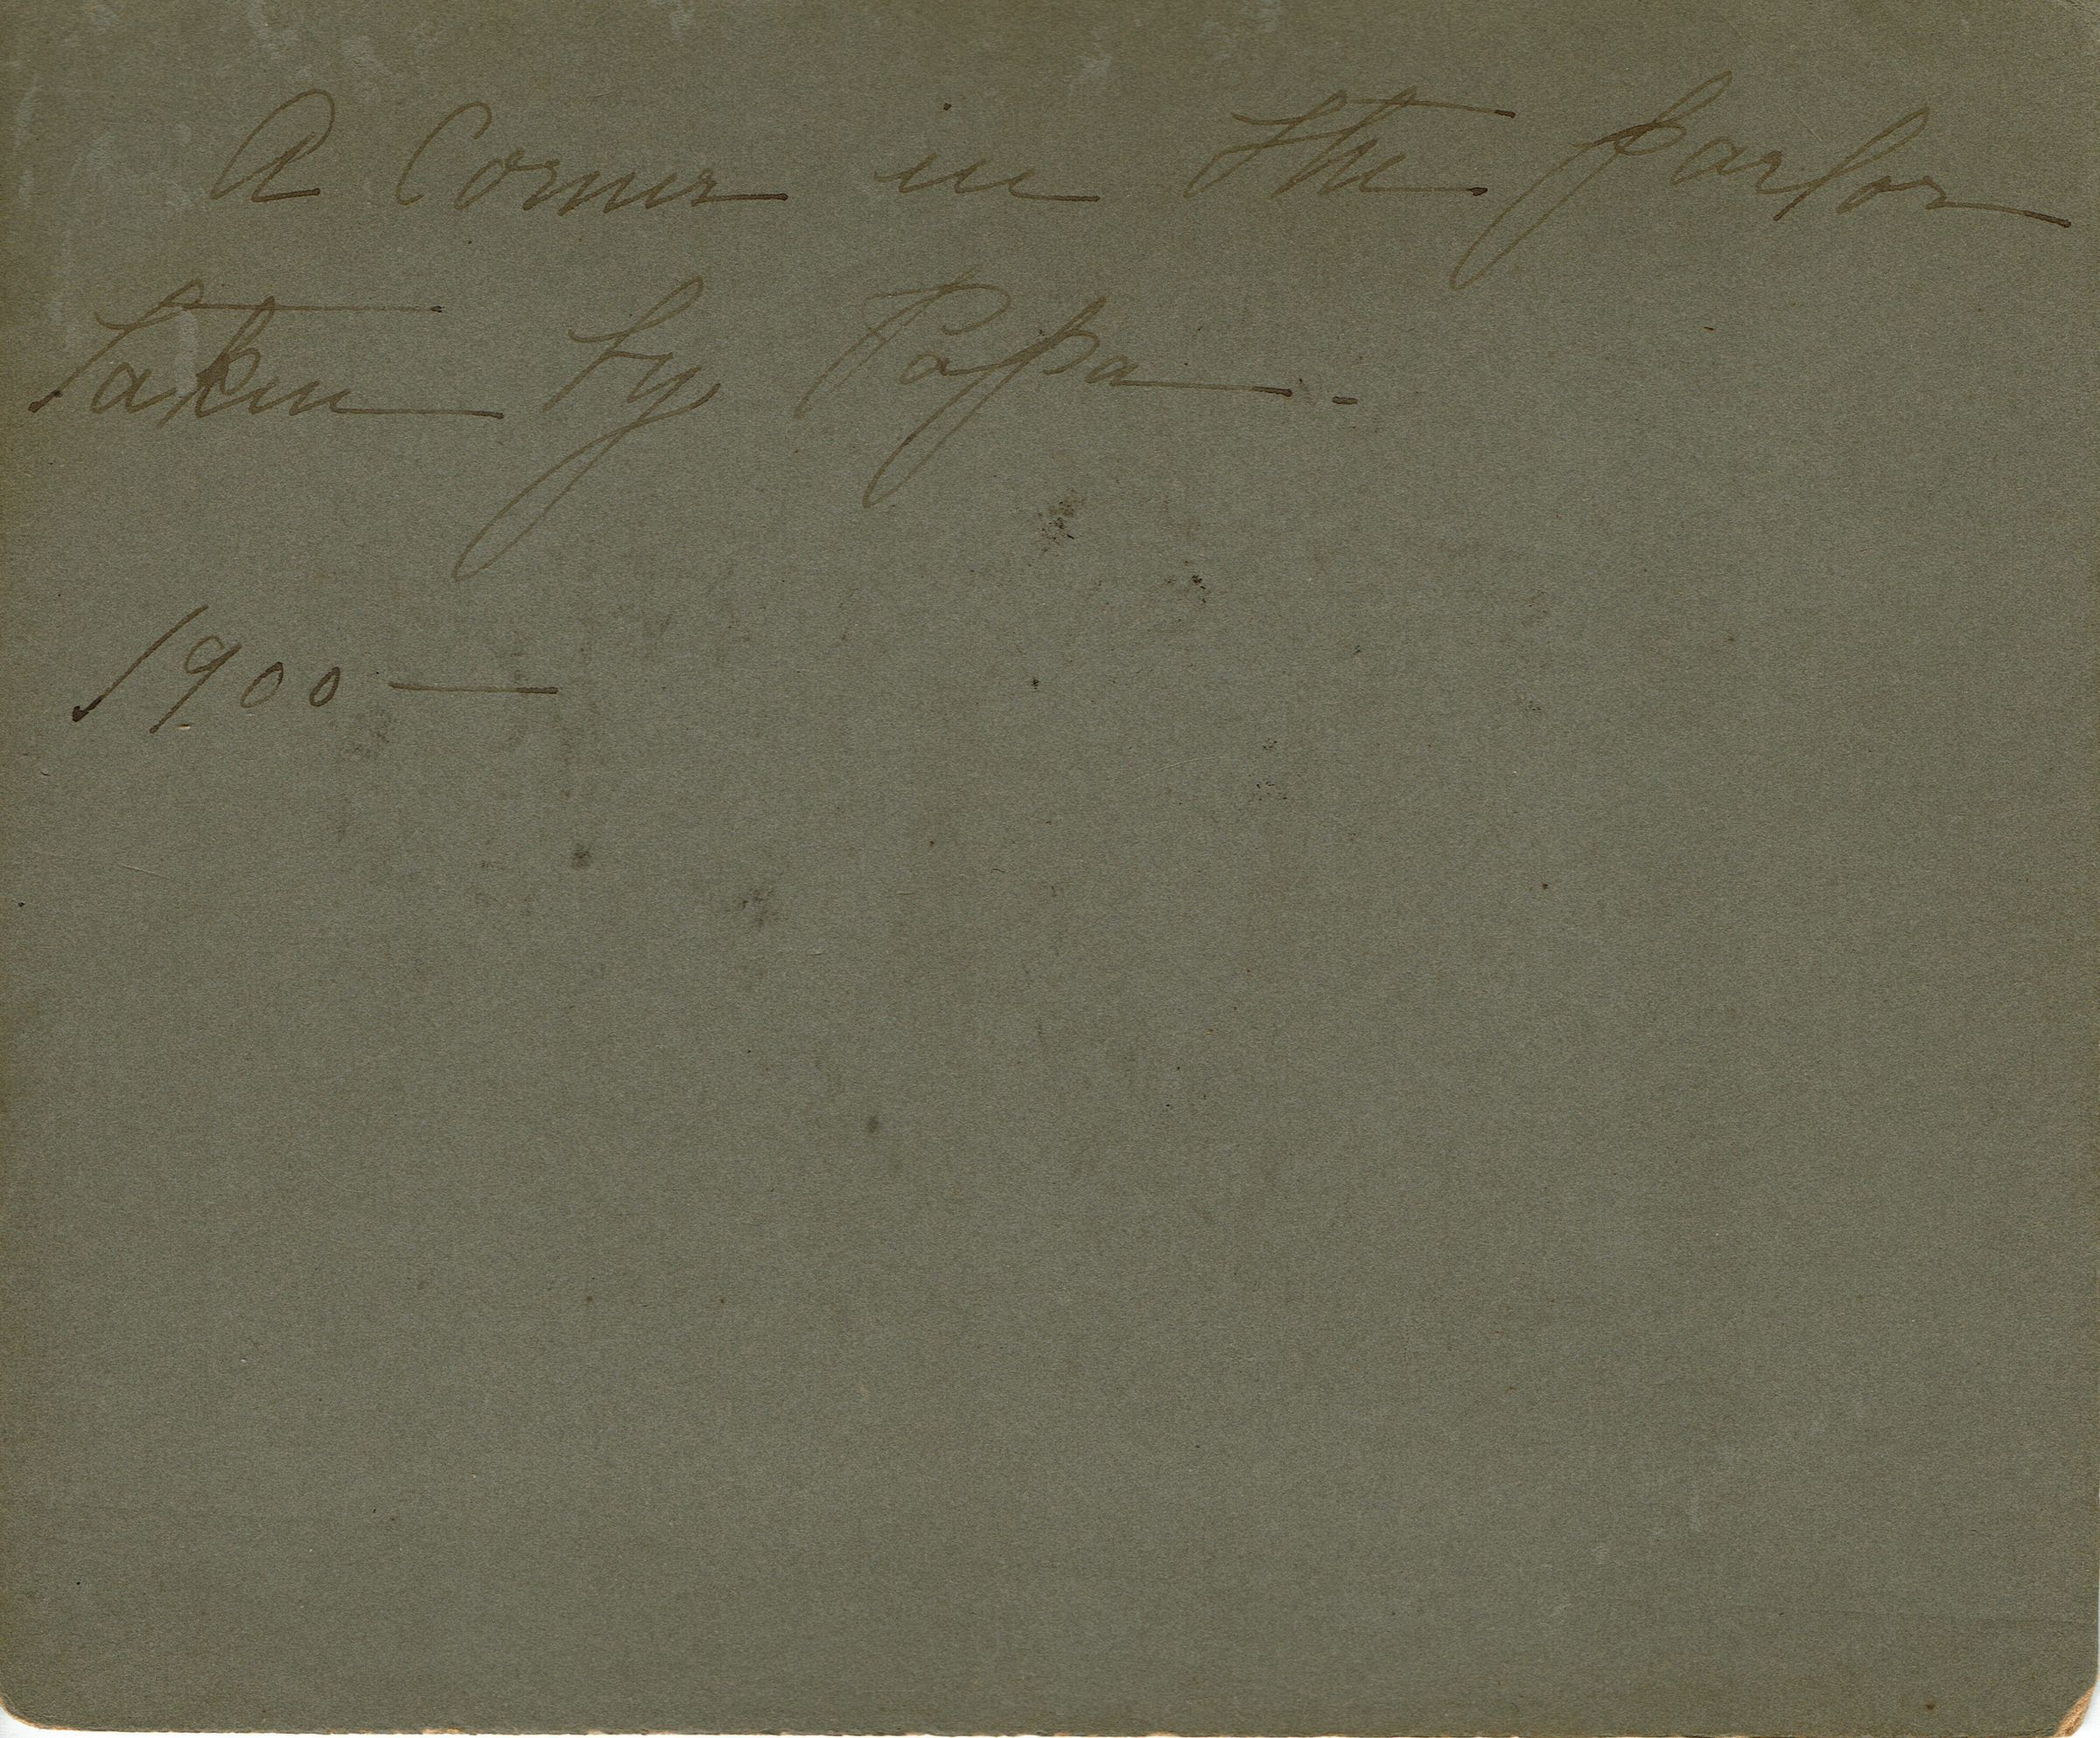 A Corner in the parlor
taken by Papa -
1900 —